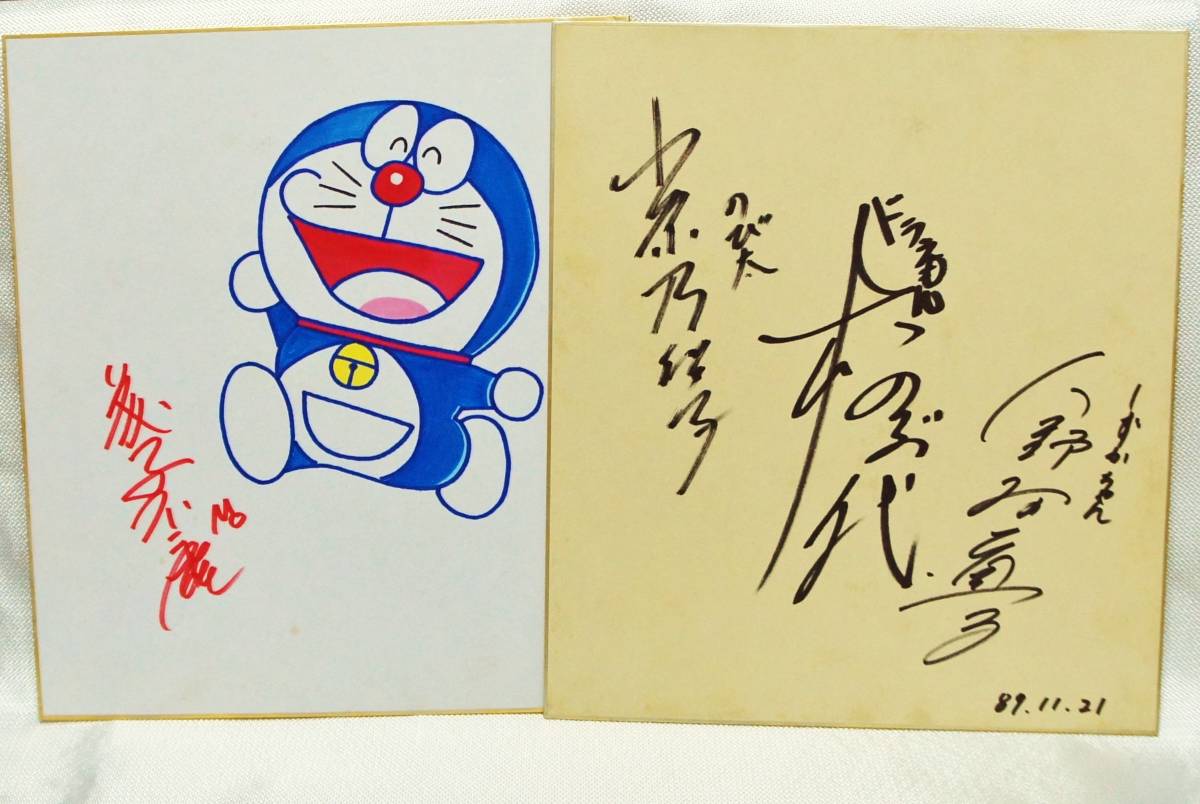 しずかちゃん
野村道子
ドラえもん
大山のぶ代
のび太
小原乃梨子
89.11.21